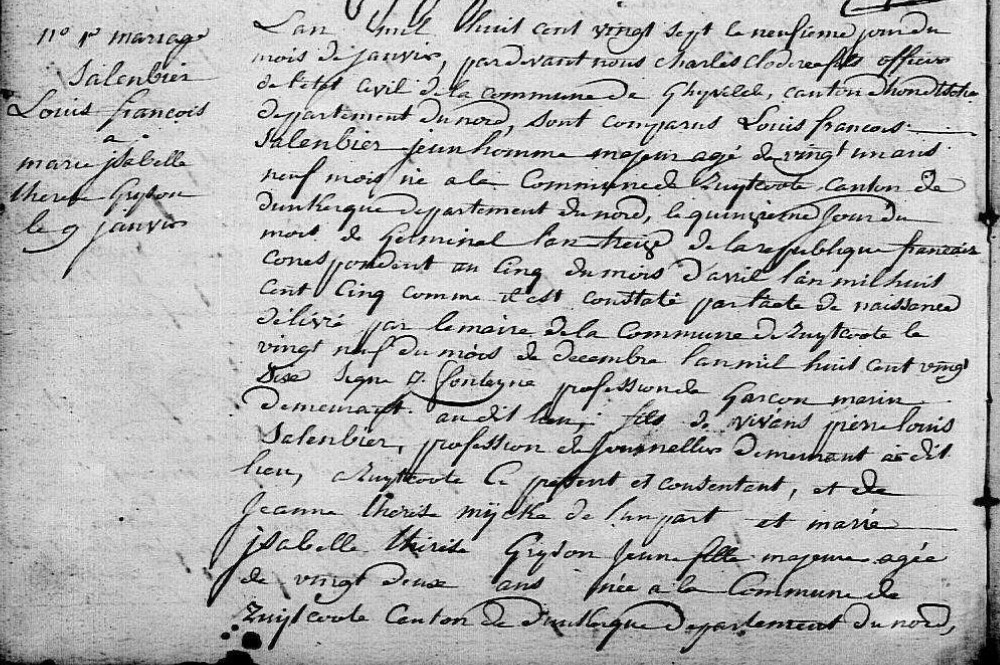 n° 1r mariage
Salenbier
Louis françois
à
marie jsabelle
therese Gryson
le 9 janvier
L'an mil huit cent vingt sept le neufieme jour du
mois de janvier, pardevant nous Charles officier
de l'etat civil de la commune de Ghyvelde, canton d'hondschote
departement du nord, sont comparus Louis francois
Salenbier jeun homme majeur agé de vingt un ans
neuf mois né a la Commune de Zuytcoote canton de
Dunkerque departement du nord, le quinzieme jour du
mois de Germinal l'an treize de la republique francaise
correspondent au Cinq du mois d'avril l'an mil huit
cent Cinq comme il est constaté par l'acte de naissance
délivré par le maire de la Commune de Zuytcoote le
vingt neuf du mois de decembre l'an mil huit cent vingt
Six Signé fonteyne profession de Garcon marin
demeurant audit lieu, fils de vivans pierre louis
Salenbier, profession de journellier demeurant a dit
lieu, a Zuytcoote Ce present et consentent, et de
Jeanne therese mijcke de l'un part et marie
jsabelle thérése Gryson jeune fille majeure agée
de vingt deux ans née a la Commune de
Zuijtcoote Canton de Dunkerque departement du nord,